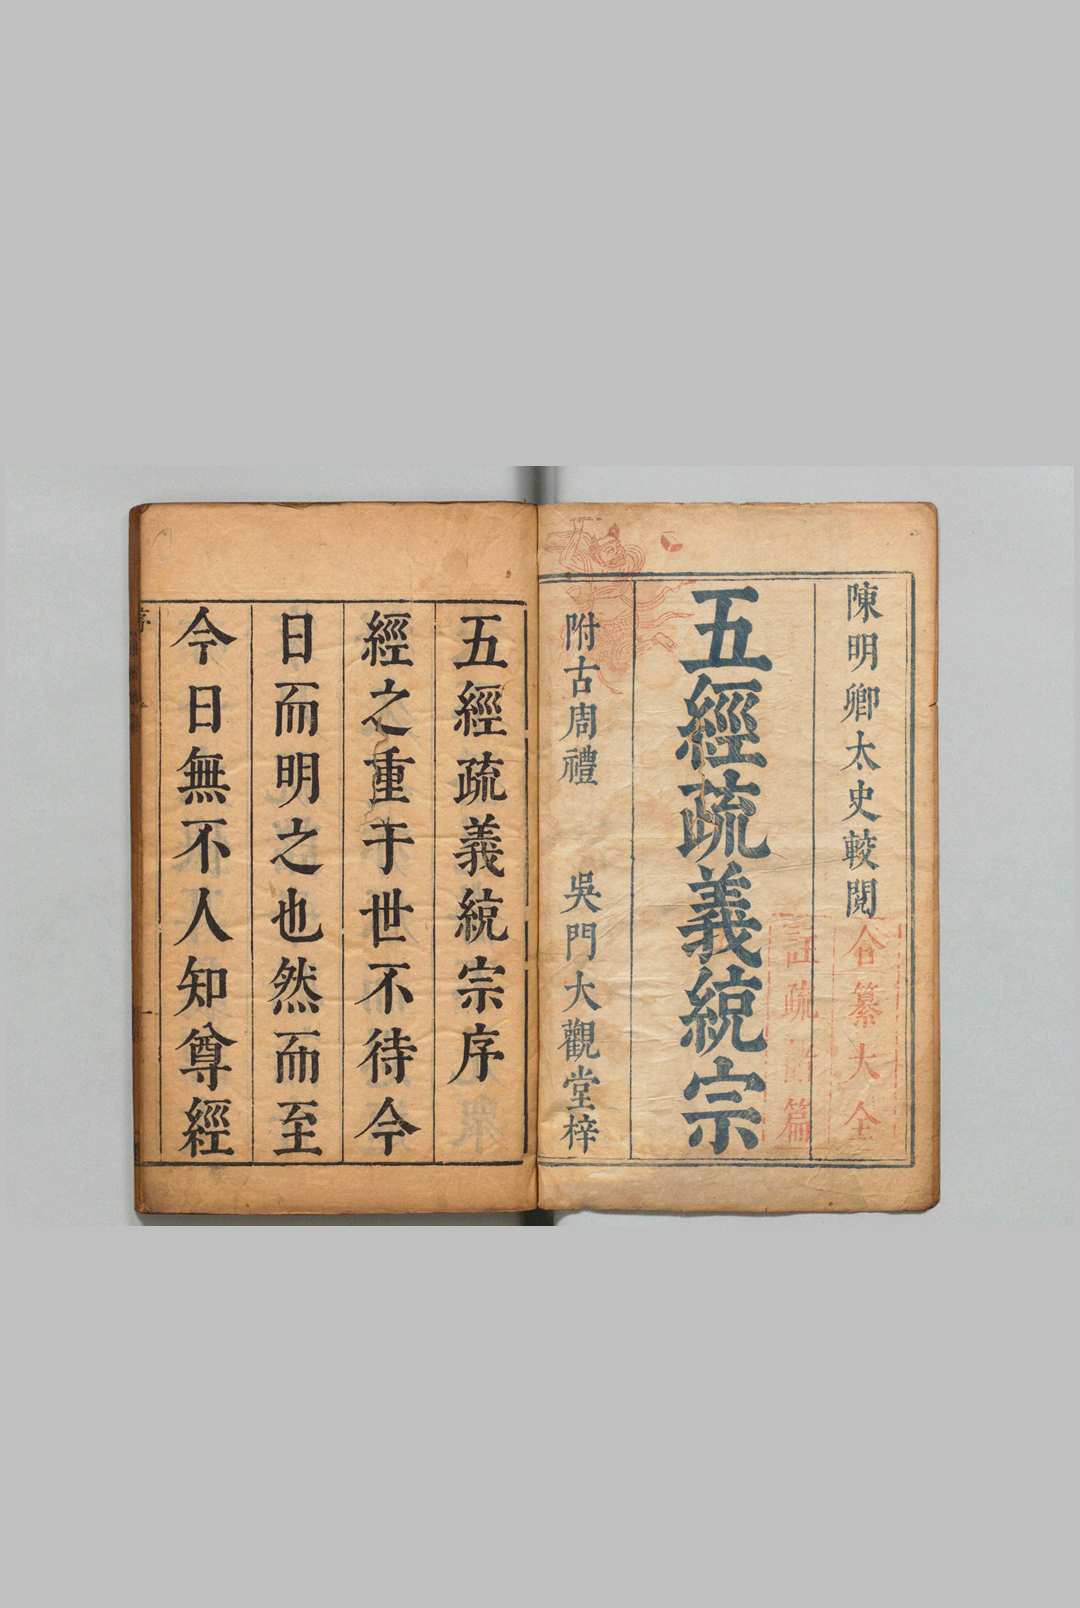 陳明卿太史較閱
合纂大全
註疏
篇
五經疏義統宗
附古周禮　吳門大觀堂梓
五經疏義統宗序
經之重于世不待今
日而明之也然而至
今日無不人知尊經
序
一